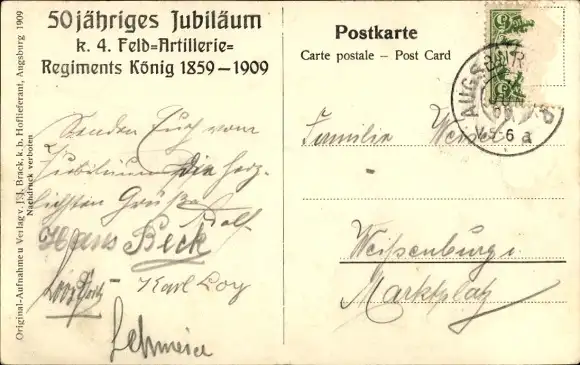 50jähriges Jubiläum
k. 4. Feld=Artillerie=
Regiments König 1859–1909
Original-Aufnahme u Verlag v. J. J. Brack, k. b. Hoflieferant, Augsburg 1909
Nachdruck verboten
Senden Euch vom
Jubiläum die herz-
lichsten Grüße
Adolf
Hans Beck
Karl Loy
Postkarte
Carte postale – Post Card
AUGSBURG
6 a
Familie
Weißenburg i.
Marktplatz